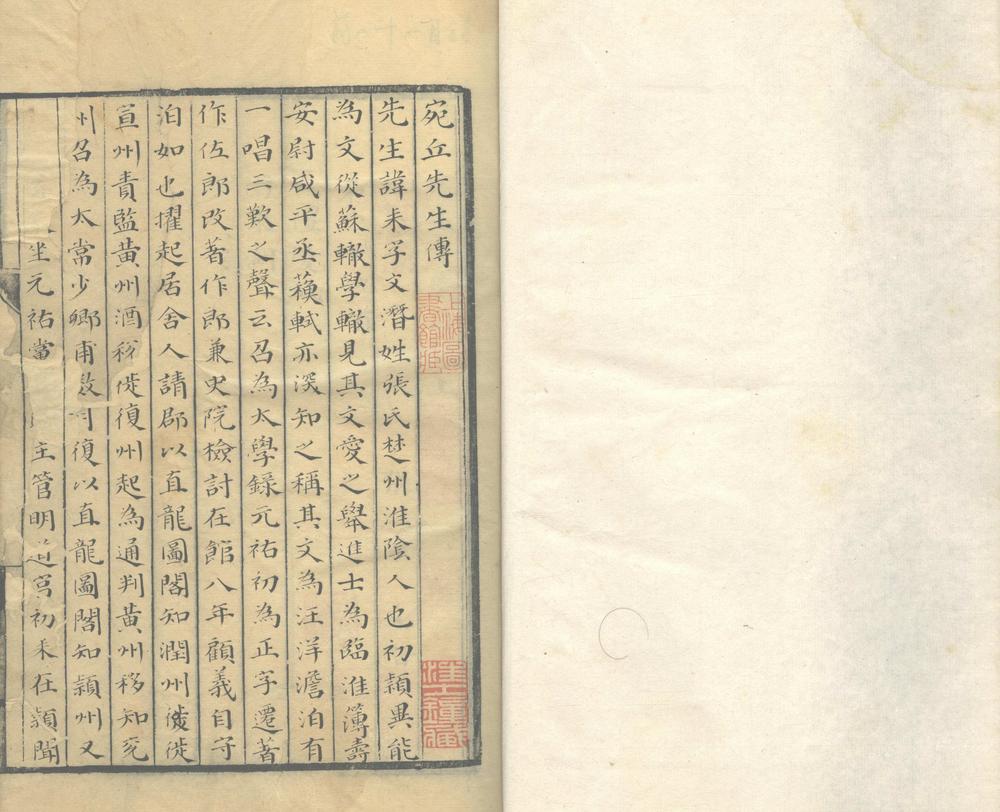 宛丘先生傳
先生諱耒字文潛姓張氏楚州淮陰人也初穎異能
為文從蘇轍學轍見其文愛之舉進士為臨淮簿壽
安尉咸平丞蘓軾亦深知之稱其文為汪洋澹泊有
一唱三歎之聲云召為太學錄元祐初為正字遷著
作佐郎改著作郎兼史院檢討在館八年顧義自守
泊如也擢起居舍人請郡以直龍圖閣知潤州徙
宣州責監黃州酒稅徙復州起為通判黃州移知兗
州召為太常少卿甫數月復以直龍圖閣知潁州又
坐元祐當主管明道宮初耒在潁聞
上海圖書館